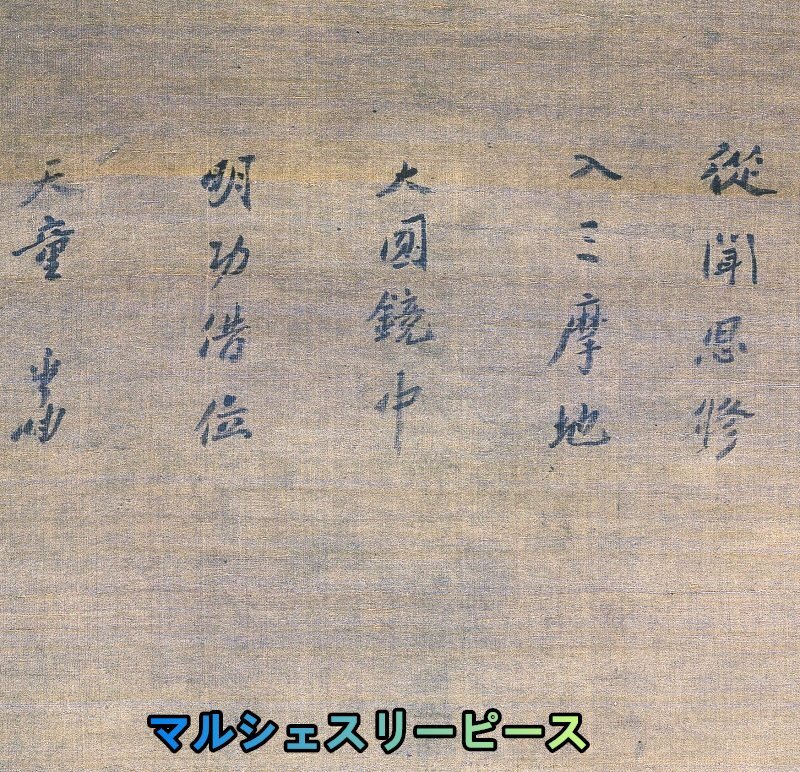 從聞思修
入三摩地
大圓鏡中
明功借位
天童
マルシェスリーピース